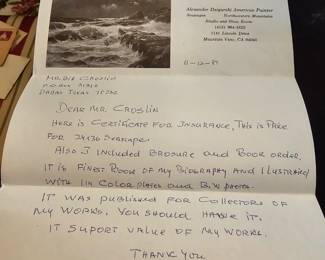 Alexander Dzigurski American Painter
Seascapes Northwestern Mountains
Studio and Show Room
Mountain View, CA 94040
11-12-87
MR. Croslin
DEAR MR. CROSLIN
HERE IS CERTIFICATE FOR INSURANCE, THIS IS PRICE
FOR 24X36 SEASCAPE.
ALSO I INCLUDED BROSURE AND BOOK ORDER.
IT IS FINEST BOOK OF MY BIOGRAPHY AND ILLUSTRATED
WITH 114 COLOR PLATES AND B/W PHOTOS.
IT WAS PUBLISHED FOR COLLECTORS OF
MY WORKS. YOU SHOULD HAVE IT.
IT SUPORT VALUE OF MY WORKS.
THANK YOU